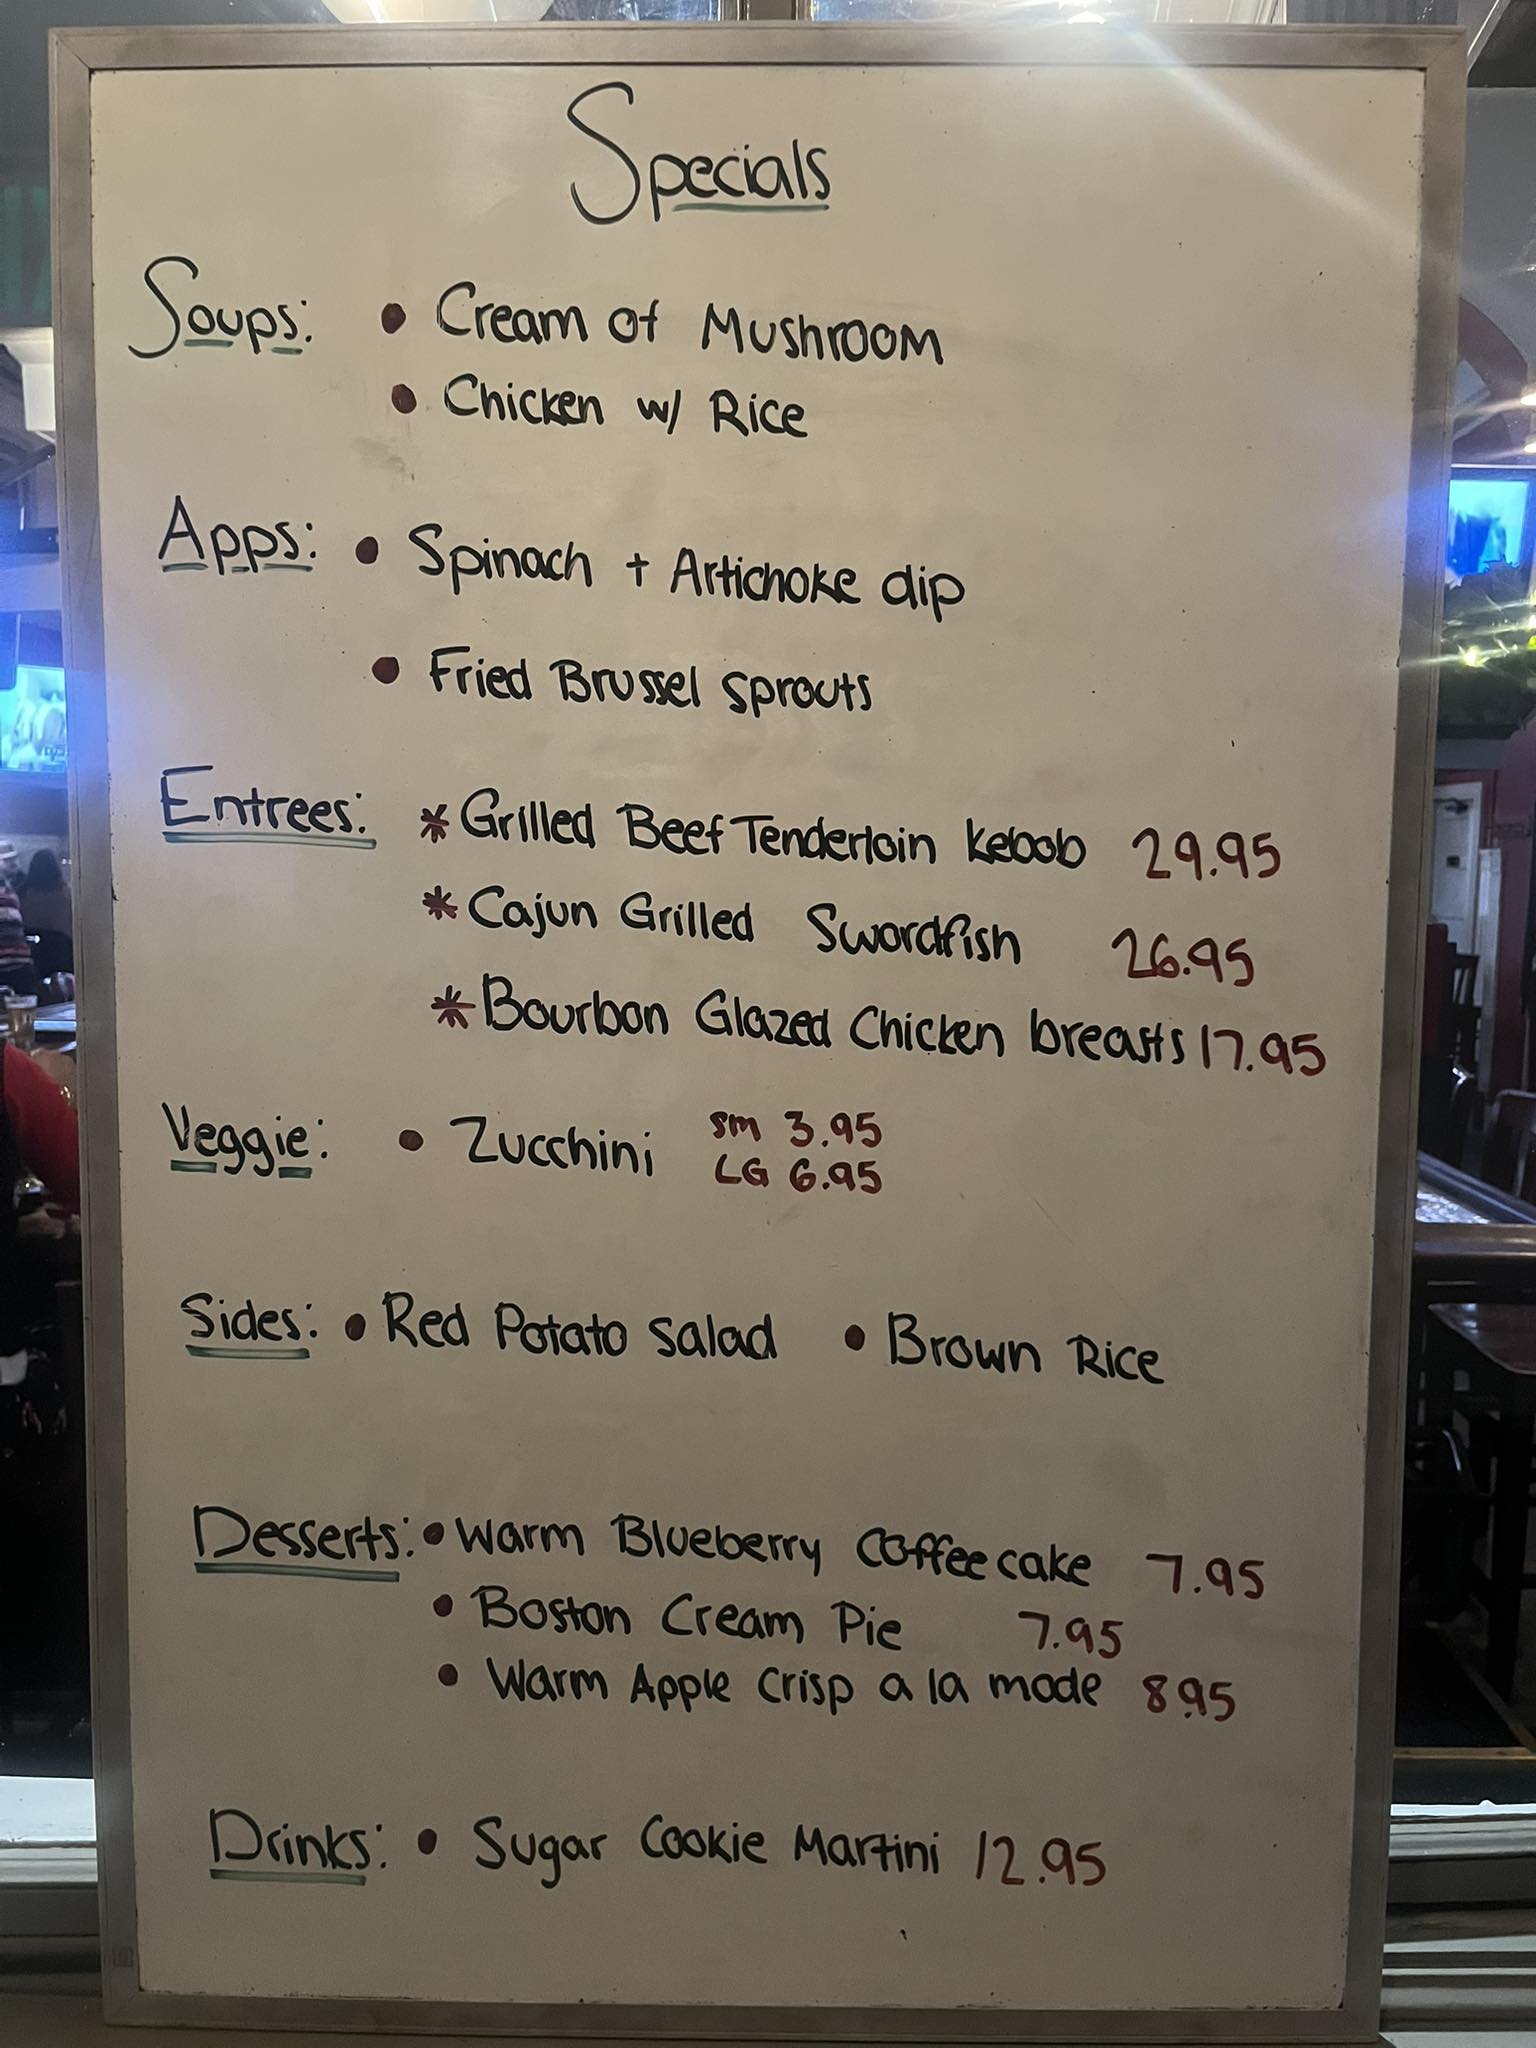 Specials
Soups: • Cream of Mushroom
• Chicken w/ Rice
Apps: • Spinach + Artichoke dip
• Fried Brussel sprouts
Entrees: * Grilled Beef Tenderloin Kebob 29.95
* Cajun Grilled Swordfish 26.95
* Bourbon Glazed Chicken breasts 17.95
Veggie: • Zucchini sm 3.95
LG 6.95
Sides: • Red Potato Salad • Brown Rice
Desserts: • Warm Blueberry Coffee cake 7.95
• Boston Cream Pie 7.95
• Warm Apple Crisp a la mode 8.95
Drinks: • Sugar Cookie Martini 12.95